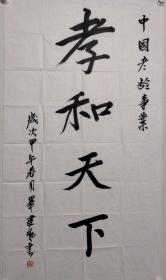 中国老龄事业
孝和天下
岁次甲午春月毕建勋书